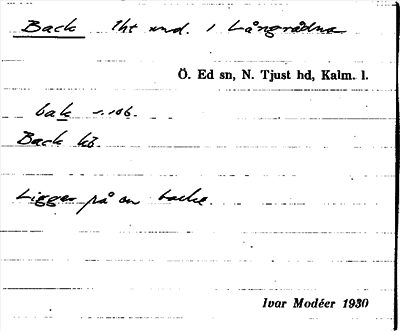 Back 1ht und. 1 Långrådna
Ö. Ed sn, N. Tjust hd, Kalm. l.
bak
Back kb.
Ligger på en backe.
Ivar Modéer 1930